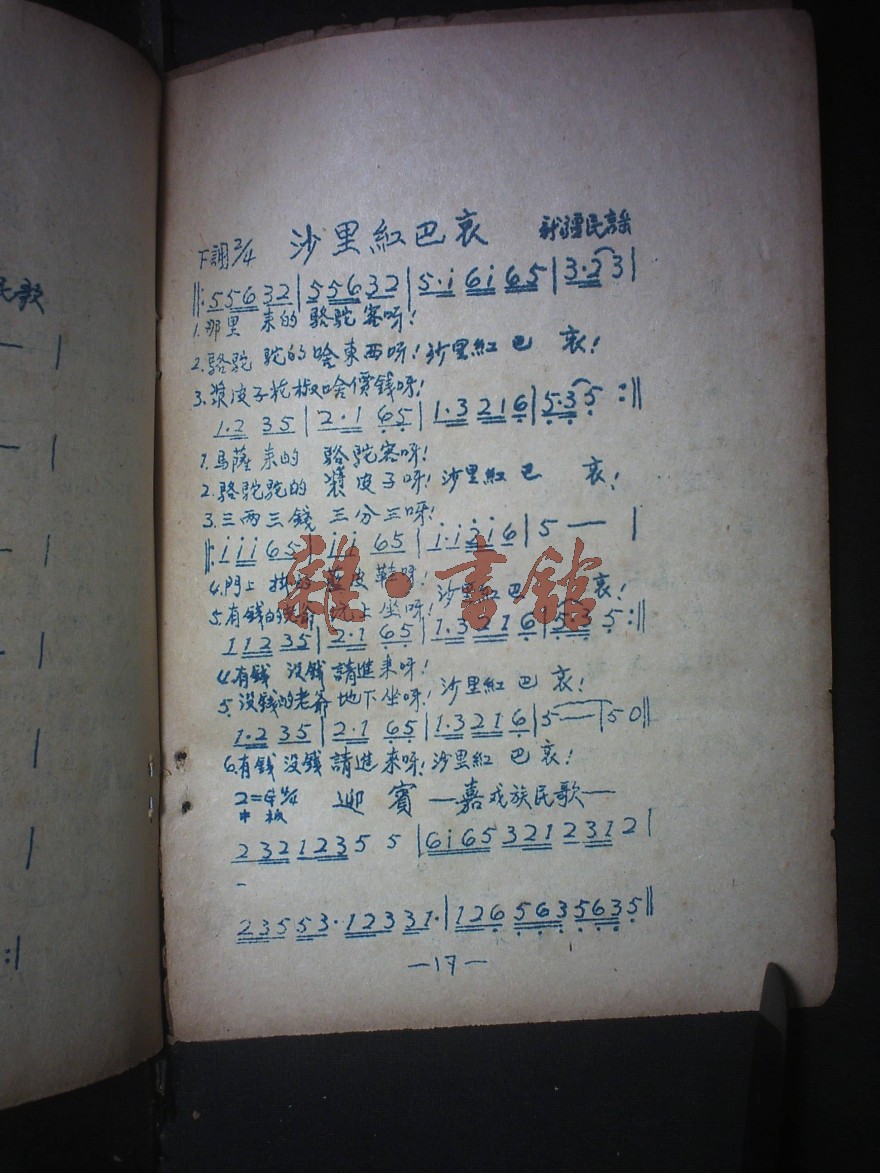 民歌
沙里紅巴哀
新疆民謠
下調 2/4
‖: 5 5 6 3 2 | 5 5 6 3 2 | 5 · i 6 i 6 5 | 3 · 2 3 |
1.那里 来的 駱駝客呀!
2.駱駝 駝的啥東西呀! 沙里紅 巴 哀!
3.漿皮子花椒啥價錢呀!
1 · 2 3 5 | 2 · 1 6 5 | 1 · 3 2 1 6 | 5 · 3 5 :‖
1.馬薩 来的 駱駝客呀!
2.駱駝駝的 漿皮子呀! 沙里紅 巴 哀!
3.三両三錢 三分三呀!
‖: i i i 6 5 | i i 6 5 | i · i 2 i 6 | 5 — |
4.門上 掛的 皮鞋呀! 沙里紅 巴 哀!
5.有錢的老爺 坑上 坐呀!
1 1 2 3 5 | 2 · 1 6 5 | 1 · 3 2 1 6 | 5 · 3 5 :‖
4.有錢 沒錢 請進来呀!
5.沒錢的老爺 地下坐呀! 沙里紅 巴 哀!
1 · 2 3 5 | 2 · 1 6 5 | 1 · 3 2 1 6 | 5 — | 5 0 ‖
6.有錢 沒錢 請進 来呀! 沙里紅 巴 哀!
迎賓 —嘉戎族民歌—
中板
2 3 2 1 2 3 5 5 | 6 i 6 5 3 2 1 2 3 1 2 |
2 3 5 5 3 · 1 2 3 3 1 · | 1 2 6 5 6 3 5 6 3 5 ‖
—17—
雜·書舘